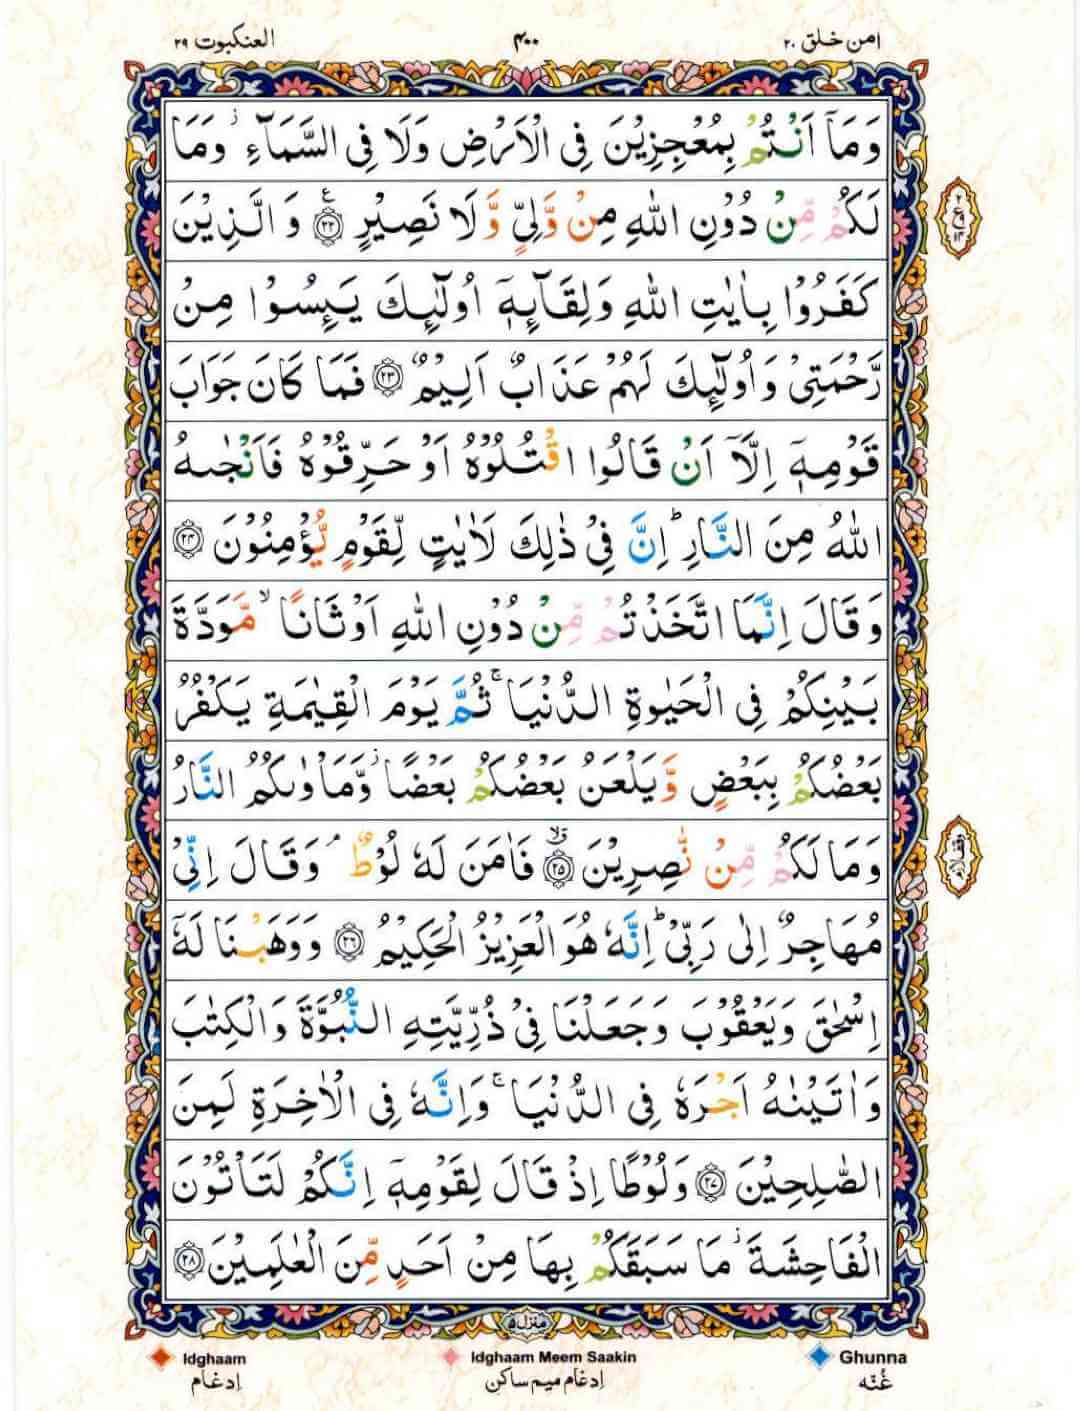 امن خلق ۲۰
۴۰۰
العنکبوت ۲۹
وَمَاۤ اَنْتُمْ بِمُعْجِزِيْنَ فِى الْاَرْضِ وَلَا فِى السَّمَآءِ ۫ وَمَا
لَكُمْ مِّنْ دُوْنِ اللّٰهِ مِنْ وَّلِيٍّ وَّلَا نَصِيْرٍ ﴿۲۲﴾ وَالَّذِيْنَ
كَفَرُوْا بِاٰيٰتِ اللّٰهِ وَلِقَآئِهٖۤ اُولٰٓئِكَ يَئِسُوْا مِنْ
رَّحْمَتِىْ وَاُولٰٓئِكَ لَهُمْ عَذَابٌ اَلِيْمٌ ﴿۲۳﴾ فَمَا كَانَ جَوَابَ
قَوْمِهٖۤ اِلَّاۤ اَنْ قَالُوا اقْتُلُوْهُ اَوْ حَرِّقُوْهُ فَاَنْجٰىهُ
اللّٰهُ مِنَ النَّارِ ؕ اِنَّ فِىْ ذٰلِكَ لَاٰيٰتٍ لِّقَوْمٍ يُّؤْمِنُوْنَ ﴿۲۴﴾
وَقَالَ اِنَّمَا اتَّخَذْتُمْ مِّنْ دُوْنِ اللّٰهِ اَوْثَانًا ۙ مَّوَدَّةَ
بَيْنِكُمْ فِى الْحَيٰوةِ الدُّنْيَا ۚ ثُمَّ يَوْمَ الْقِيٰمَةِ يَكْفُرُ
بَعْضُكُمْ بِبَعْضٍ وَّيَلْعَنُ بَعْضُكُمْ بَعْضًا ۫ وَّمَاْوٰىكُمُ النَّارُ
وَمَا لَكُمْ مِّنْ نّٰصِرِيْنَ ﴿۲۵﴾ فَاٰمَنَ لَهٗ لُوْطٌ ۘ وَقَالَ اِنِّىْ
مُهَاجِرٌ اِلٰى رَبِّىْ ؕ اِنَّهٗ هُوَ الْعَزِيْزُ الْحَكِيْمُ ﴿۲۶﴾ وَوَهَبْنَا لَهٗۤ
اِسْحٰقَ وَيَعْقُوْبَ وَجَعَلْنَا فِىْ ذُرِّيَّتِهِ النُّبُوَّةَ وَالْكِتٰبَ
وَاٰتَيْنٰهُ اَجْرَهٗ فِى الدُّنْيَا ۚ وَاِنَّهٗ فِى الْاٰخِرَةِ لَمِنَ
الصّٰلِحِيْنَ ﴿۲۷﴾ وَلُوْطًا اِذْ قَالَ لِقَوْمِهٖۤ اِنَّكُمْ لَتَاْتُوْنَ
الْفَاحِشَةَ ۫ مَا سَبَقَكُمْ بِهَا مِنْ اَحَدٍ مِّنَ الْعٰلَمِيْنَ ﴿۲۸﴾
منزل ۵
Idghaam
Idghaam Meem Saakin
Ghunna
اِدغام
اِدغام میم ساکن
غُنّه